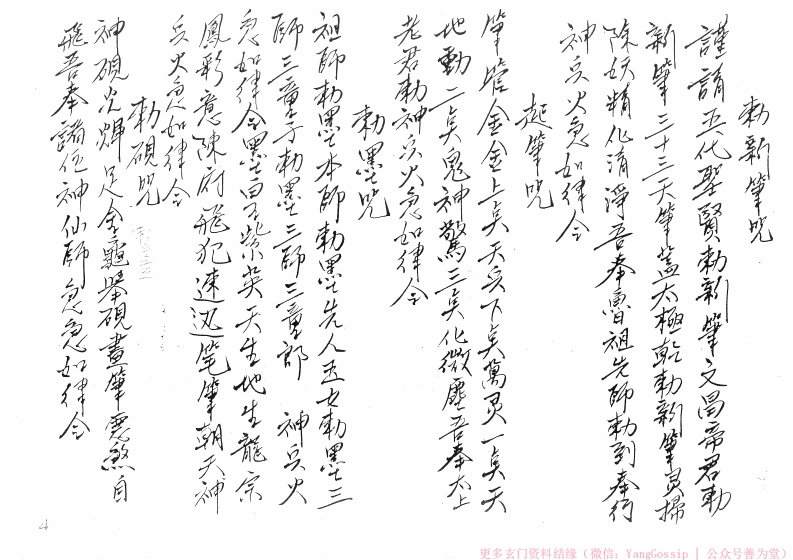 勅新筆咒
謹請五代聖賢勅新筆文昌帝君勅
新筆三十三天筆蓋太極乾勅新筆灵掃
除妖精化清淨吾奉魯祖先師勅到奉行
神兵火急如律令
起筆咒
筆管金金上点天兵下点萬灵一点天
地動二点鬼神驚三点化微塵吾奉太上
老君勅神兵火急如律令
勅墨咒
祖師勅墨本師勅墨先人玉女勅墨三
師三童子勅墨三師三童郎 神兵火
急如律令墨曰子紫英天生地生龍宗
鳳彩意陳府飛犯速迅笔筆朝天神
兵火急如律令
勅硯咒
神硯光輝足金龜舉硯畫筆
飛吾奉諸位神仙師急急如律令
4
更多玄门资料结缘（微信：YangGossip | 公众号善为堂）